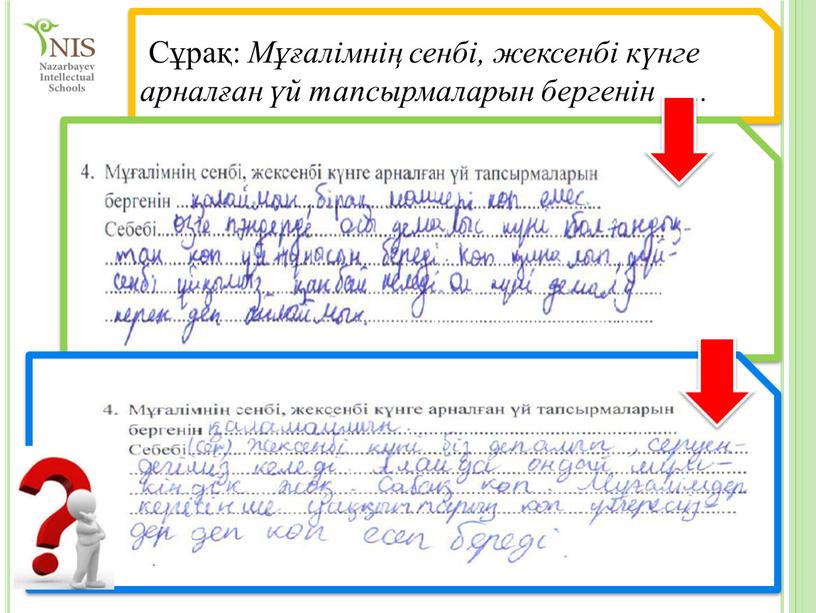 NIS
Nazarbayev
Intellectual
Schools
Сұрақ: Мұғалімнің сенбі, жексенбі күнге
арналған үй тапсырмаларын бергенін ….
4. Мұғалімнің сенбі, жексенбі күнге арналған үй тапсырмаларын
бергенін қалаймын, бірақ мөлшері көп емес
Себебі өзге пәндерде осы демалыс күні болғандық-
тан көп үй береді. Көп, дүй-
сенбі ұйқымыз қанбай келеді. Ол күні демалу
керек деп ойлаймын.
4. Мұғалімнің сенбі, жексенбі күнге арналған үй тапсырмаларын
бергенін қаламаймын
Себебі (сен) жексенбі күні біз демалып, сергуен-
дегіміз келеді. Алайда ондай мүм-
кіндік жоқ. Сабақ көп. Мұғалімдер
керісінше уақыттарың көп
дер деп көп есеп береді.